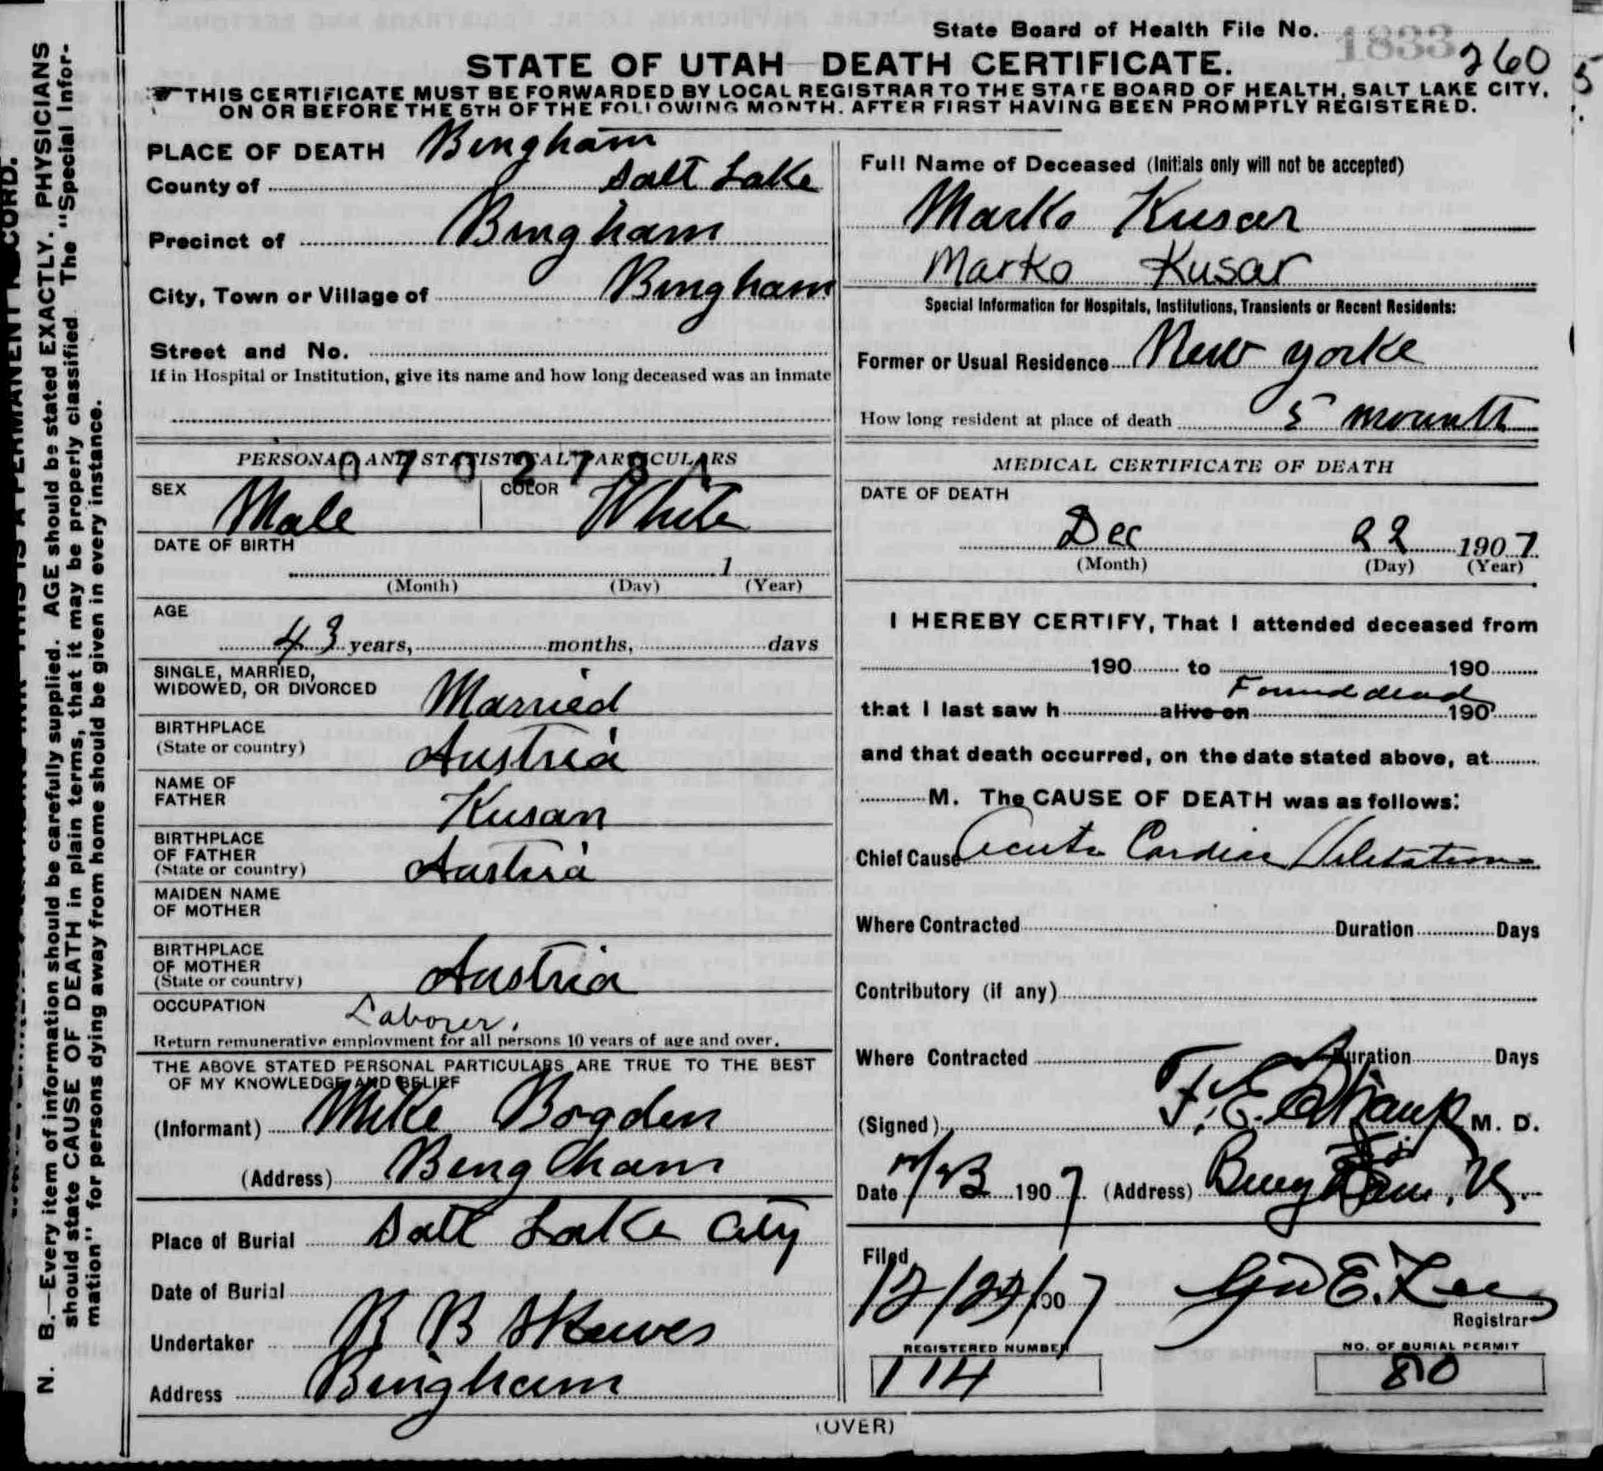 State Board of Health File No. 1833
2605
STATE OF UTAH DEATH CERTIFICATE.
THIS CERTIFICATE MUST BE FORWARDED BY LOCAL REGISTRAR TO THE STATE BOARD OF HEALTH, SALT LAKE CITY,
ON OR BEFORE THE 5TH OF THE FOLLOWING MONTH. AFTER FIRST HAVING BEEN PROMPTLY REGISTERED.
PLACE OF DEATH Bingham
County of Salt Lake
Precinct of Bingham
City, Town or Village of Bingham
Street and No.
If in Hospital or Institution, give its name and how long deceased was an inmate
PERSONAL AND STATISTICAL PARTICULARS
SEX Male COLOR White
DATE OF BIRTH
1
(Month) (Day) (Year)
AGE
43 years, months, days
SINGLE, MARRIED,
WIDOWED, OR DIVORCED Married
BIRTHPLACE
(State or country) Austria
NAME OF
FATHER Kusan
BIRTHPLACE
OF FATHER
(State or country) Austria
MAIDEN NAME
OF MOTHER
BIRTHPLACE
OF MOTHER
(State or country) Austria
OCCUPATION Laborer.
Return remunerative employment for all persons 10 years of age and over.
THE ABOVE STATED PERSONAL PARTICULARS ARE TRUE TO THE BEST
OF MY KNOWLEDGE AND BELIEF
(Informant) Mike Bogden
(Address) Bingham
Place of Burial Salt Lake City
Date of Burial
Undertaker B B Skewes
Address Bingham
Full Name of Deceased (Initials only will not be accepted)
Marko Kusar
Marko Kusar
Special Information for Hospitals, Institutions, Transients or Recent Residents:
Former or Usual Residence New yorke
How long resident at place of death 5 mounth
MEDICAL CERTIFICATE OF DEATH
DATE OF DEATH
Dec 22 1907
(Month) (Day) (Year)
I HEREBY CERTIFY, That I attended deceased from
190 to 190
Found dead
that I last saw h alive on 190
and that death occurred, on the date stated above, at
M. The CAUSE OF DEATH was as follows:
Chief Cause Acute Cardiac Dilitation
Where Contracted Duration Days
Contributory (if any)
Where Contracted Duration Days
(Signed) F. E. Straup M. D.
Date 12/23 1907 (Address) Bingham, U.
Filed
12/22/007 Geo E. Lee
Registrar
REGISTERED NUMBER
114
NO. OF BURIAL PERMIT
80
(OVER)
N. B.—Every item of information should be carefully supplied. AGE should be stated EXACTLY. PHYSICIANS
should state CAUSE OF DEATH in plain terms, that it may be properly classified. The "Special Infor-
mation" for persons dying away from home should be given in every instance.
THIS IS A PERMANENT RECORD.